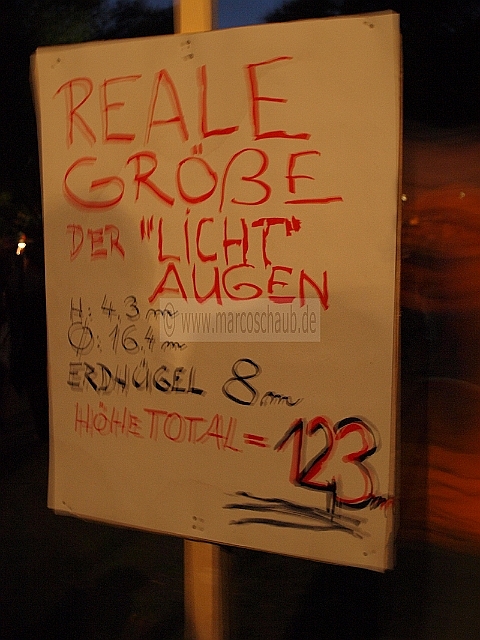 REALE
GRÖßE
DER "LICHT"
AUGEN
H: 4,3 m
© www.marcoschaub.de
Ø: 16,4 m
ERDHÜGEL 8m
HÖHE TOTAL = 12,3m